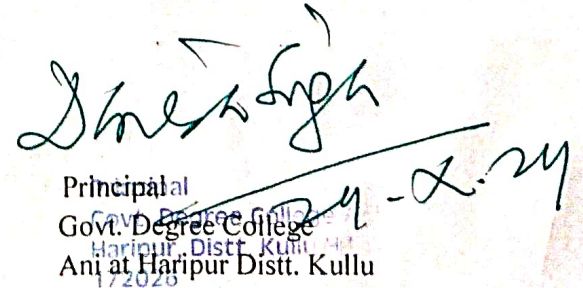 Singh
24-X-24
Principal
Govt. Degree College
Ani at Haripur Distt. Kullu
Govt. Degree College
Haripur, Distt. Kullu
172026